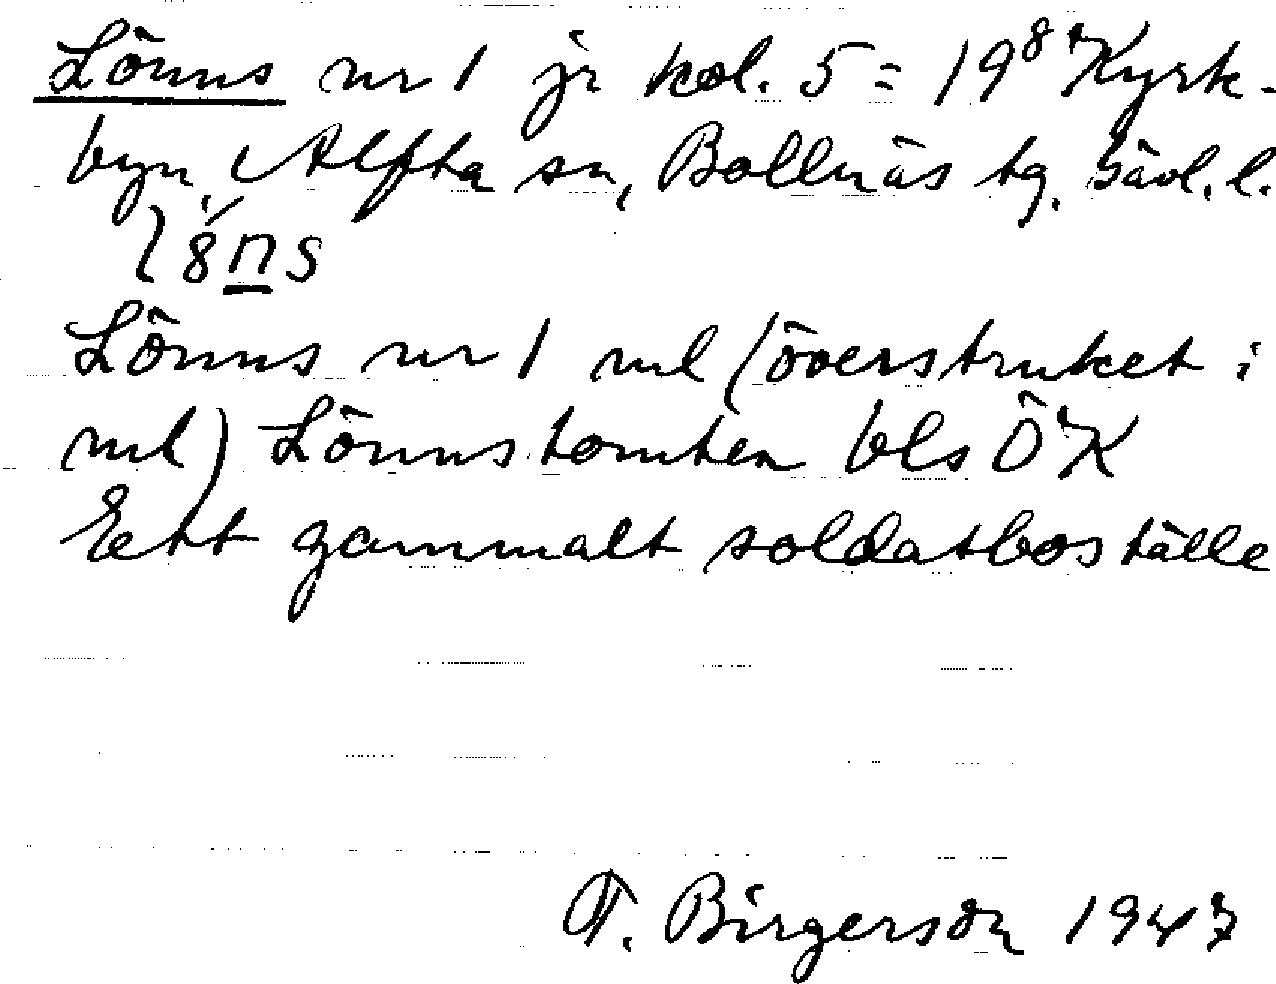 Lönns nr 1 jr kol. 5 = 19⁸ Kyrk-
byn, Alfta sn, Bollnäs tg. Gävl. l.
Lönns nr 1 ml (överstruket i
ml) Lönnstomten bls ÖK
Ett gammalt soldatboställe
T. Birgerson 1947